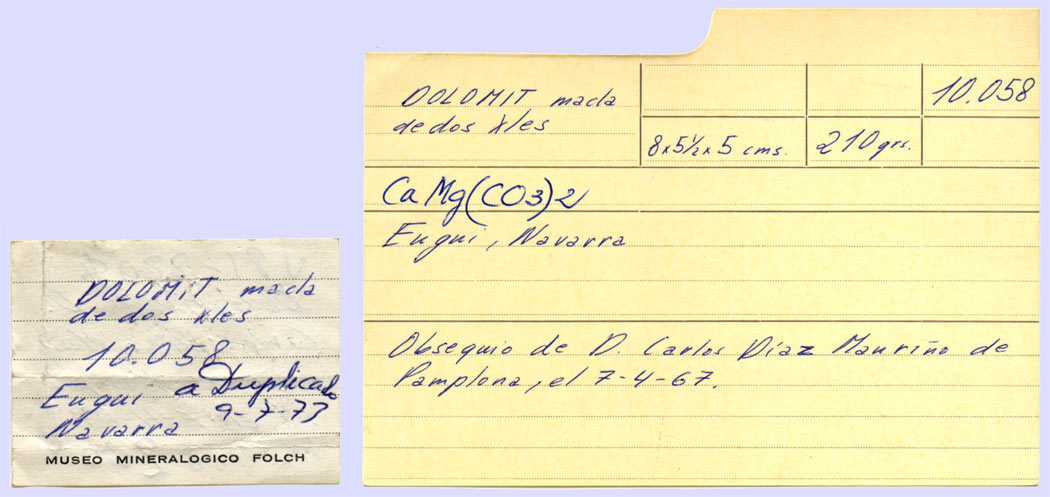 DOLOMIT macla
de dos xles
10.058
Eugui a Duplicado
9-7-73
Navarra
MUSEO MINERALOGICO FOLCH
DOLOMIT macla
de dos Xles
10.058
8x5½x5 cms.
210 grs.
CaMg(CO3)2
Eugui, Navarra
Obsequio de D. Carlos Díaz Mauriño de
Pamplona, el 7-4-67.